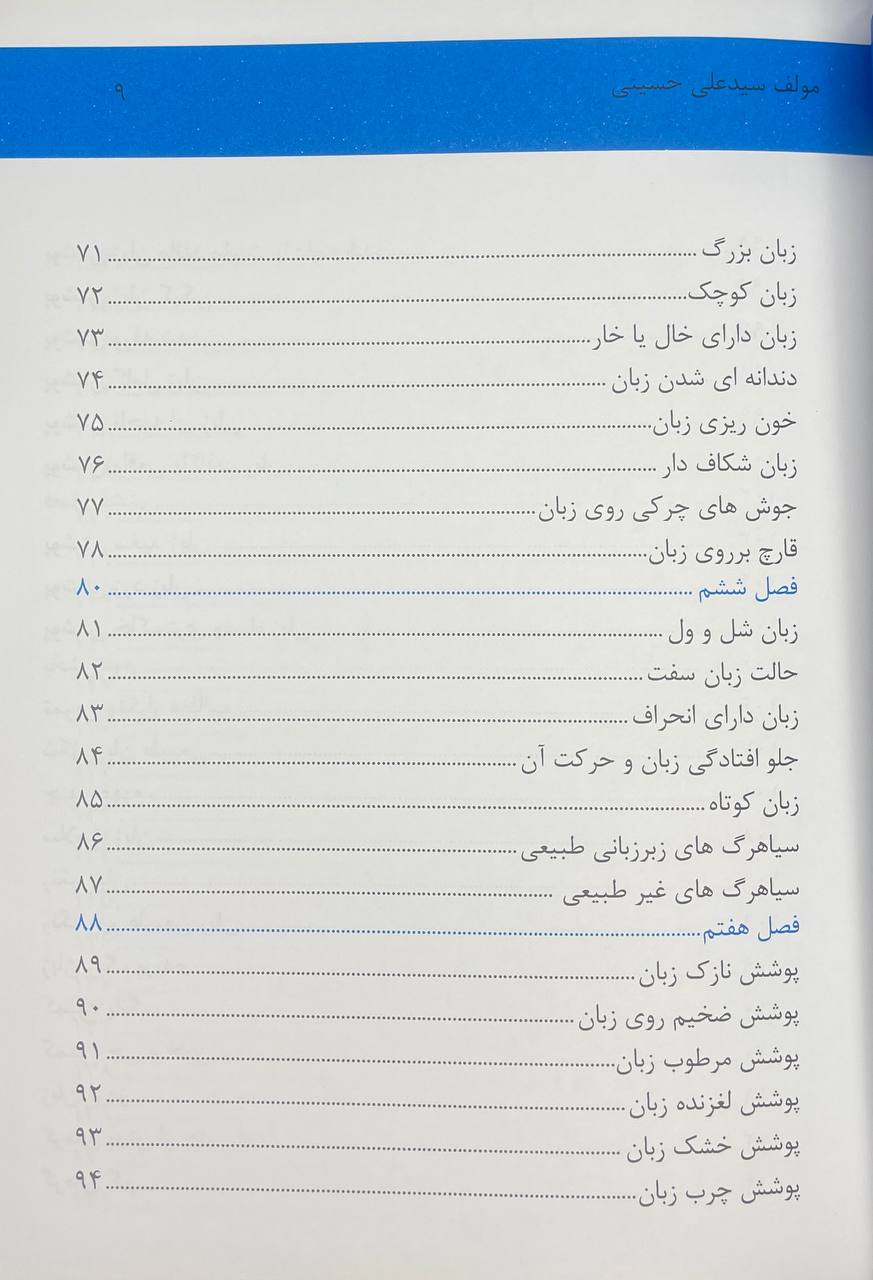 مولف سیدعلی حسینی ۹
زبان بزرگ ۷۱
زبان کوچک ۷۲
زبان دارای خال یا خار ۷۳
دندانه ای شدن زبان ۷۴
خون ریزی زبان ۷۵
زبان شکاف دار ۷۶
جوش های چرکی روی زبان ۷۷
قارچ برروی زبان ۷۸
فصل ششم ۸۰
زبان شل و ول ۸۱
حالت زبان سفت ۸۲
زبان دارای انحراف ۸۳
جلو افتادگی زبان و حرکت آن ۸۴
زبان کوتاه ۸۵
سیاهرگ های زبرزبانی طبیعی ۸۶
سیاهرگ های غیر طبیعی ۸۷
فصل هفتم ۸۸
پوشش نازک زبان ۸۹
پوشش ضخیم روی زبان ۹۰
پوشش مرطوب زبان ۹۱
پوشش لغزنده زبان ۹۲
پوشش خشک زبان ۹۳
پوشش چرب زبان ۹۴